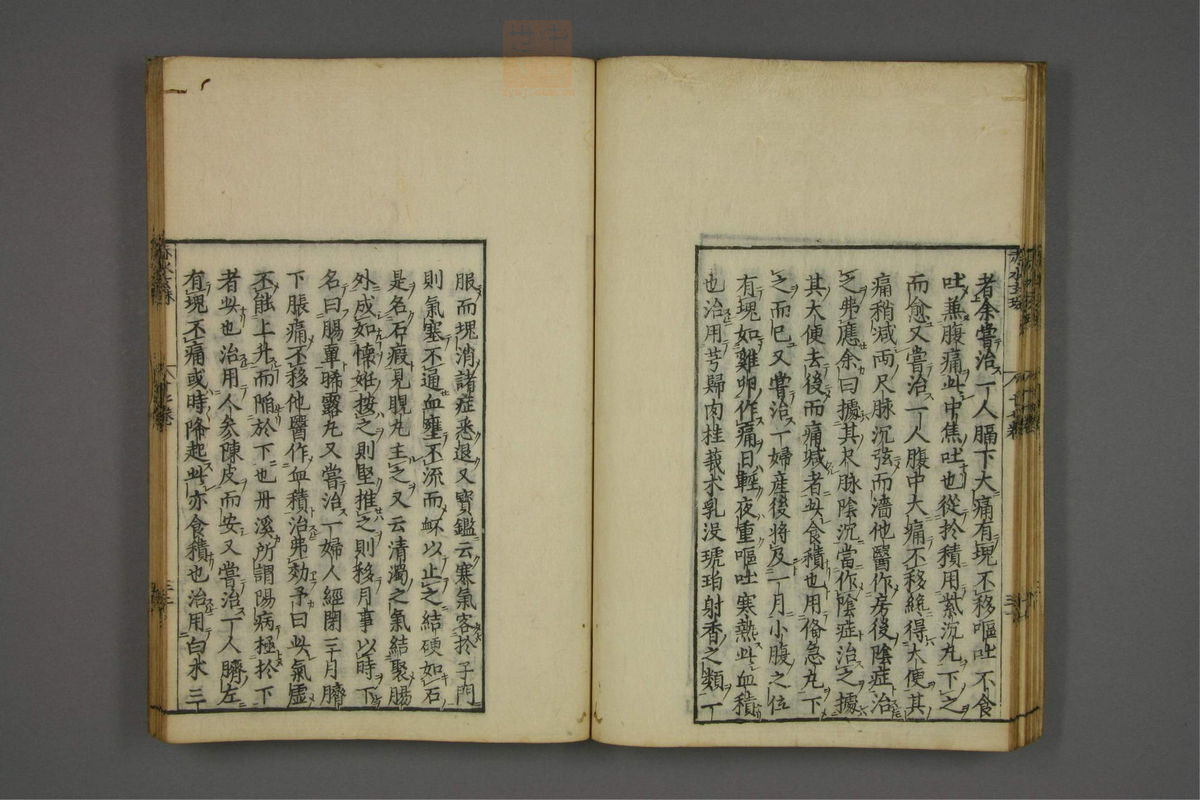 者余嘗治一人膈下大痛有塊不移嘔吐不食
吐蒸腹痛此中焦吐也從於積用紫沉丸下之
而愈又嘗治一人腹中大痛不移絲得大便其
痛稍減兩尺脉沉弦而濇他醫作房後陰症治
之弗應余曰據其尺脉陰沉當作陰症治之據
其大便去後而痛减者此食積也用俻急丸下
之而已又嘗治一婦産後將及一月小腹之位
有塊如雞卵作痛日輕夜重嘔吐寒熱此血積
也治用芎歸肉桂莪术乳没琥珀射香之類一
服而塊消諸症悉退又寶鑑云寒氣客於子門
則氣塞不通血壅不流而衃以止之結硬如石
是名石瘕見晛丸主之又云清濁之氣結聚腸
外成如懷姙按之則堅推之則移月事以時下
名曰腸覃晞露丸又嘗治一婦人經閉三月臍
下脹痛不移他醫作血積治弗効予曰此氣虛
不能上升而陷於下也丹溪所謂陽病極於下
者此也治用人參陳皮而安又嘗治一人臍左
有塊不痛或時降起此亦食積也治用白水三